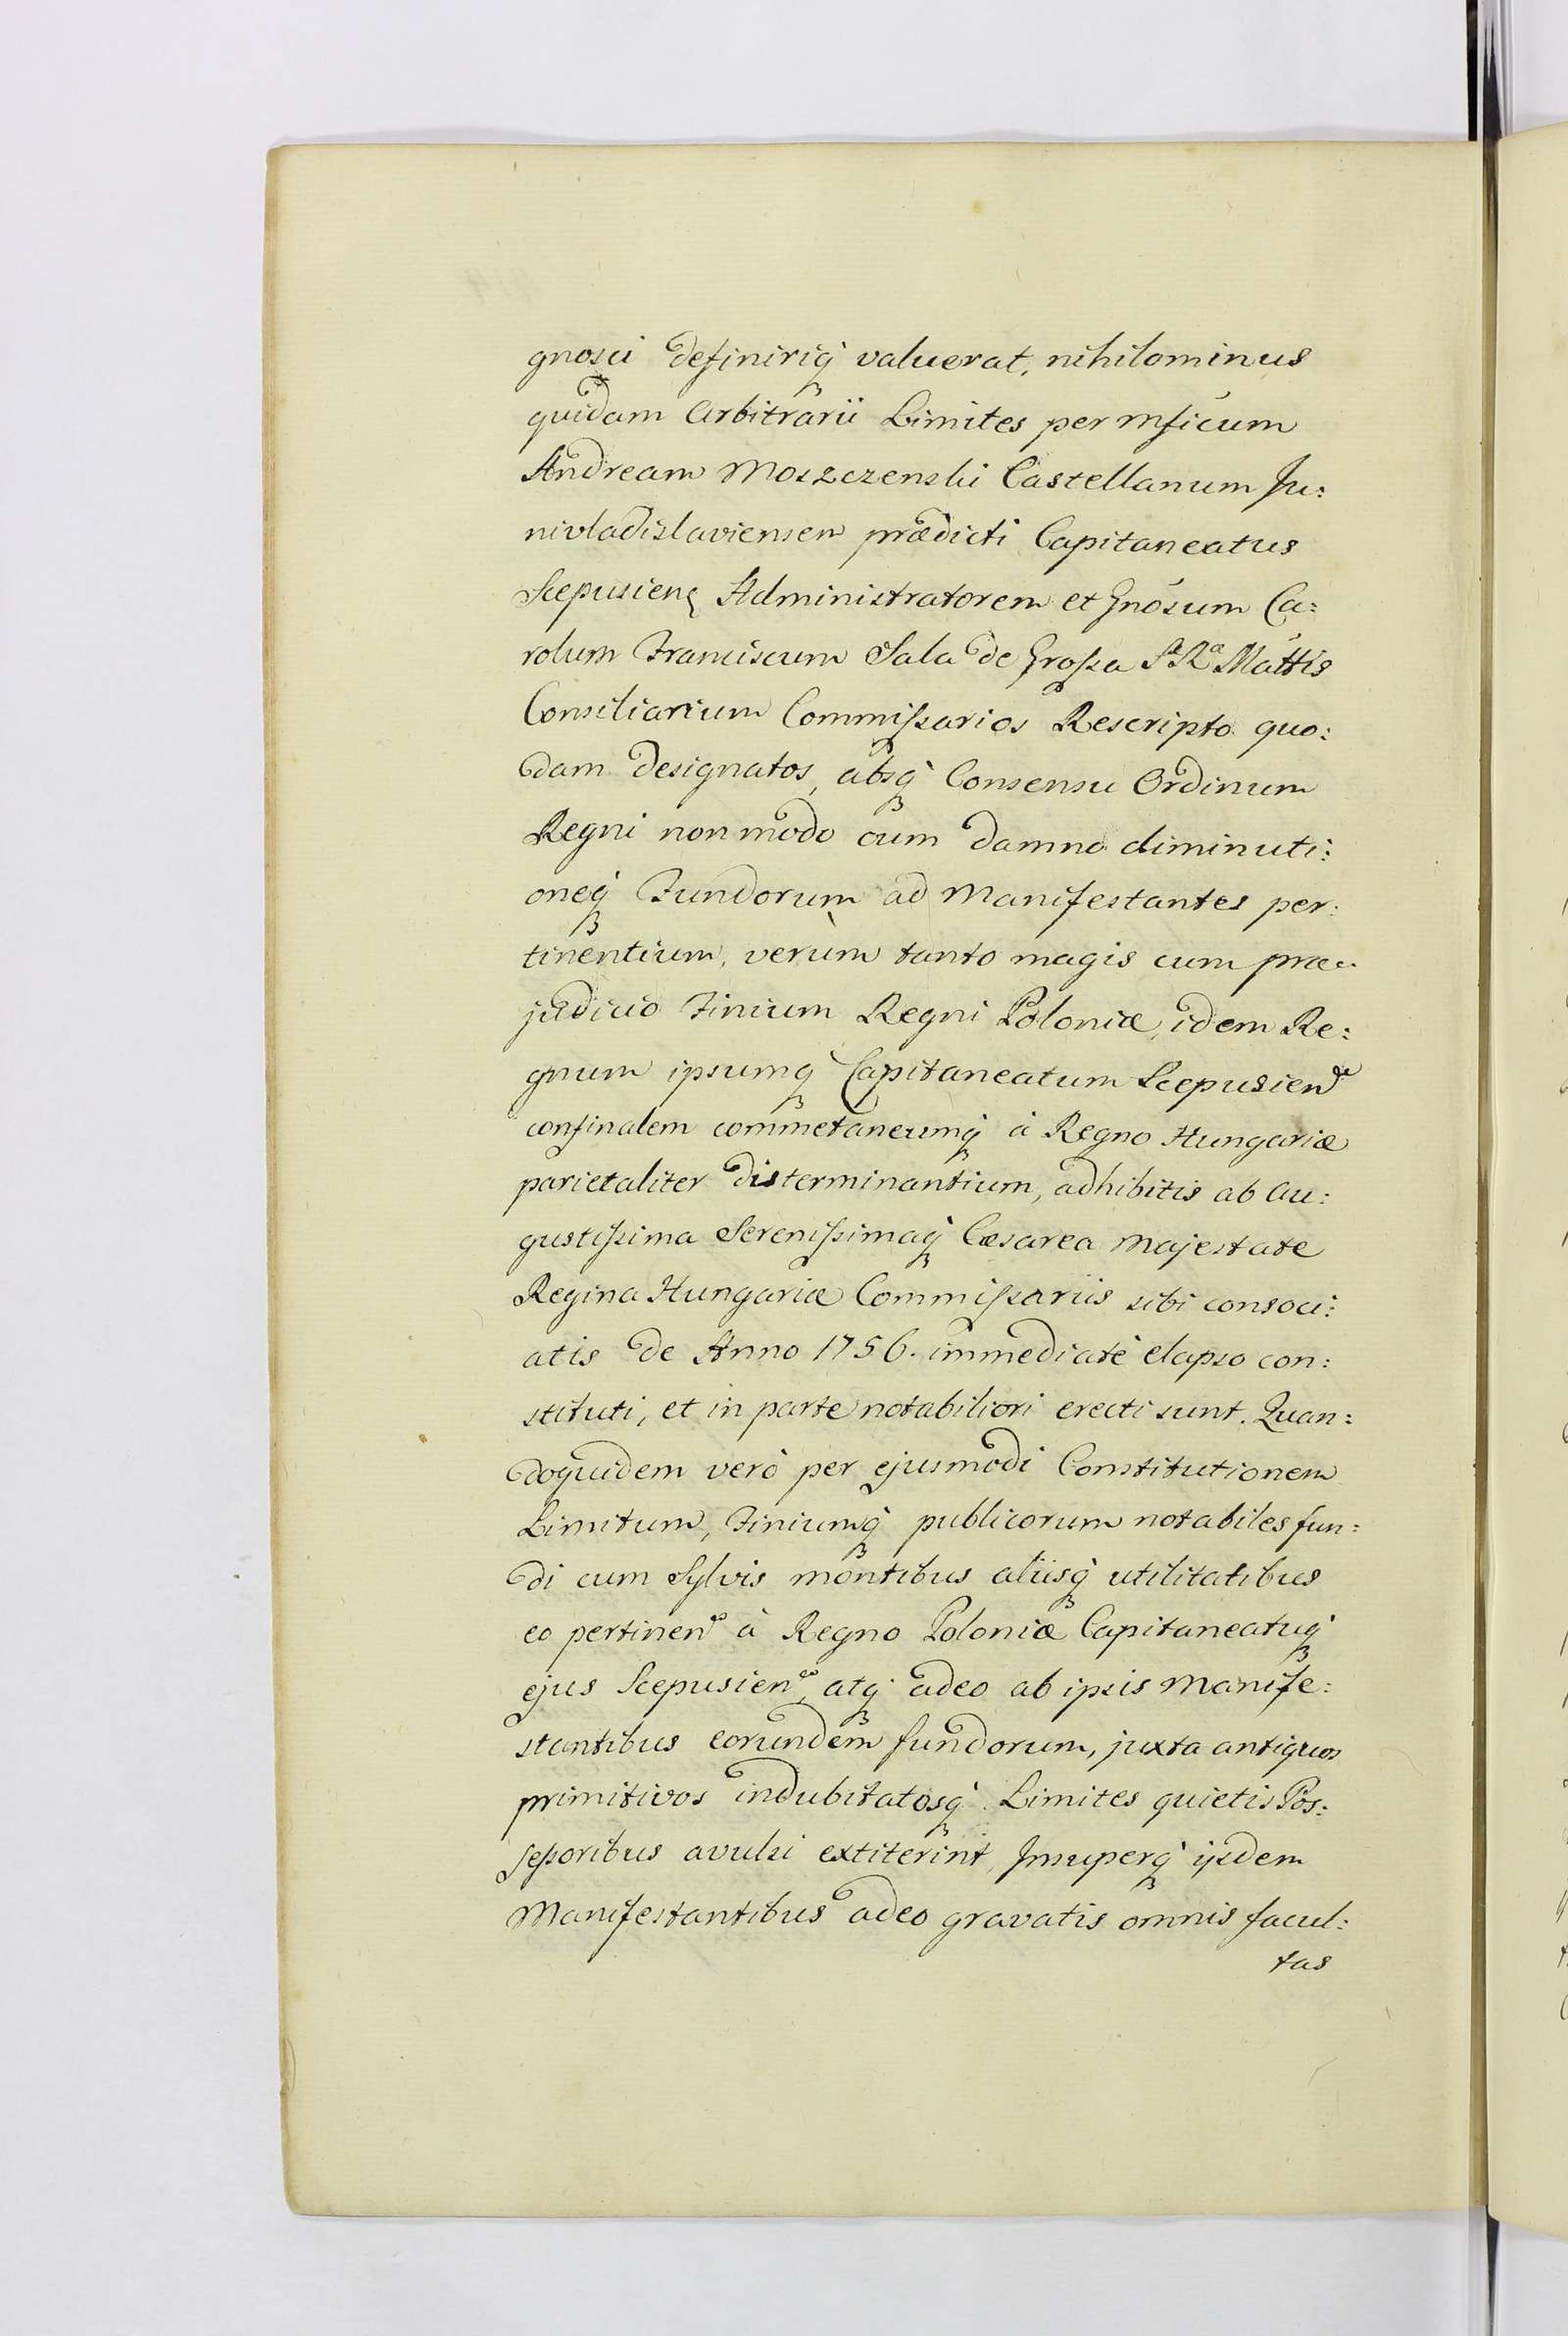 gnosci definiriq́ꝫ valuerat, nihilominus
quidam Arbitrarii Limites per Mficum
Andream Moszczenski Castellanum Ju:
nivladislaviensem prædicti Capitaneatus
Scepusienꝭ Administratorem et Gnosum Ca:
rolum Franciscum Sala de Grossa Sæ Ræ Mattis
Consiliarium Commissarios Rescripto quo:
dam designatos, absq́ꝫ Consensu Ordinum
Regni non modo cum damno diminuti:
oneq́ꝫ Fundorum ad Manifestantes per:
tinentium, verùm tanto magis cum præ:
judicio Finium Regni Poloniæ, idem Re:
gnum ipsumq́ꝫ Capitaneatum Scepusien
confinalem commetaneumq́ꝫ à Regno Hungariæ
parietaliter disterminantium, adhibitis ab Au:
gustissima Serenissimaq́ꝫ Cæsarea Majestate
Regina Hungariæ Commissariis sibi consoci:
atis de Anno 1756. immediatè elapso con:
stituti, et in parte notabiliori erecti sunt. Quan:
doquidem verò per ejusmodi Constitutionem
Limitum, Finiumq́ꝫ publicorum notabiles fun:
di cum Sylvis montibus aliisq́ꝫ utilitatibus
eo pertinen à Regno Poloniæ Capitaneatuq́ꝫ
ejus Scepusien, atq́ꝫ adeo ab ipsis Manife:
stantibus eorundem fundorum, juxta antiquos
primitivos indubitatosq́ꝫ Limites quietis Pos:
sessoribus avulsi extiterint, Insuperq́ꝫ ijsdem
Manifestantibus adeo gravatis omnis facul:
tas